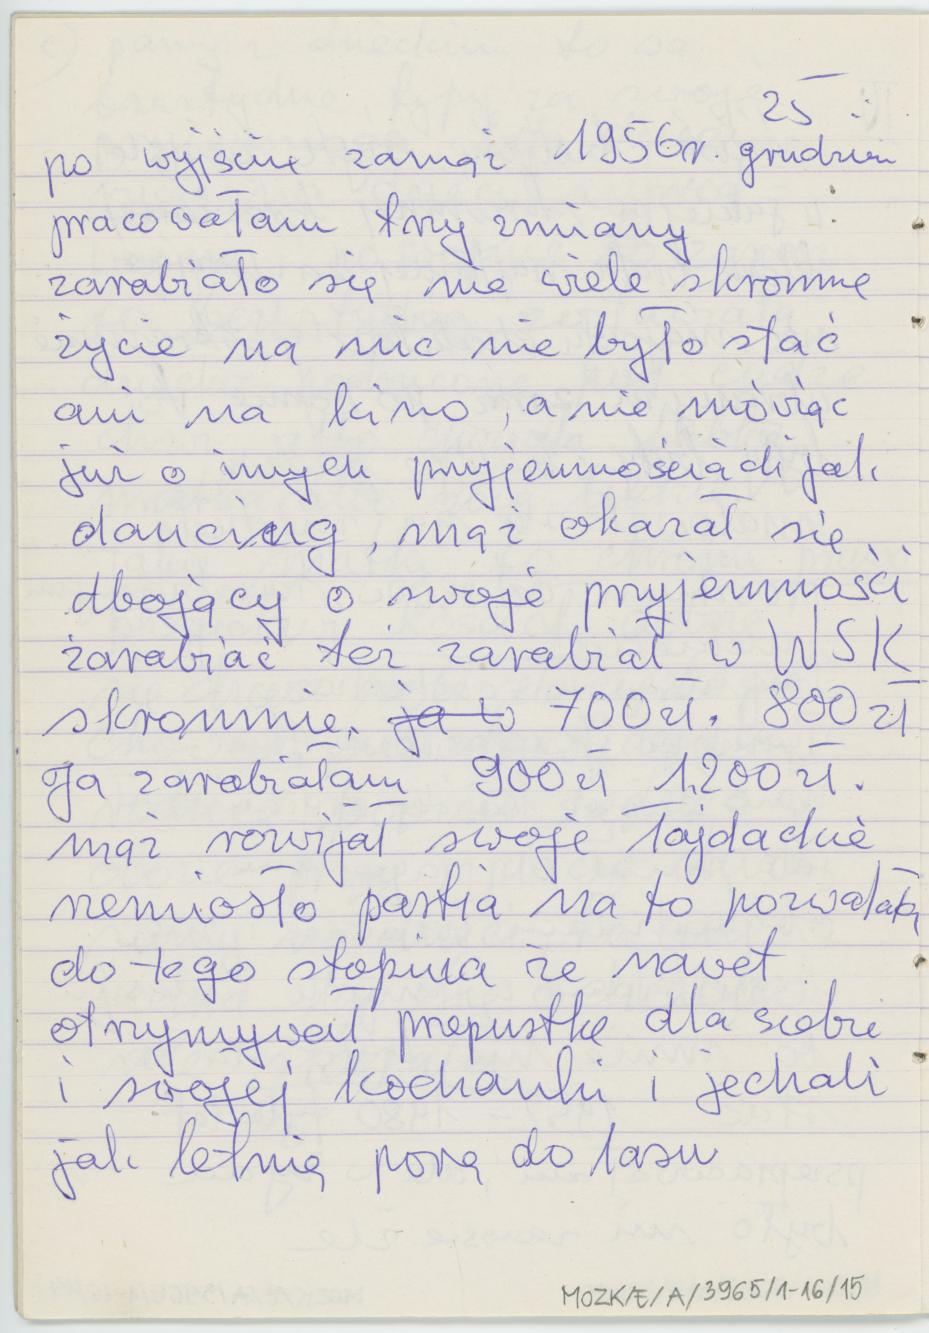 25
po wyjściu zamąż 1956r. grudzień
pracowałam trzy zmiany
zarabiało się nie wiele skromne
życie na nic nie było stać
ani na kino, a nie mówiąc
już o innych przyjemnościach jak
dancing, mąż okazał się
dbający o swoje przyjemności
zarabiać też zarabiał w WSK
skromnie, ja to 700 zł. 800 zł
Ja zarabiałam 900 zł 1.200 zł.
mąż rozwijał swoje łajdackie
rzemiosło partia na to pozwalała
do tego stopnia że nawet
otrzymywał przepustkę dla siebie
i swojej kochanki i jechali
jak letnią porą do lasu
MOZK/E/A/3965/1-16/15